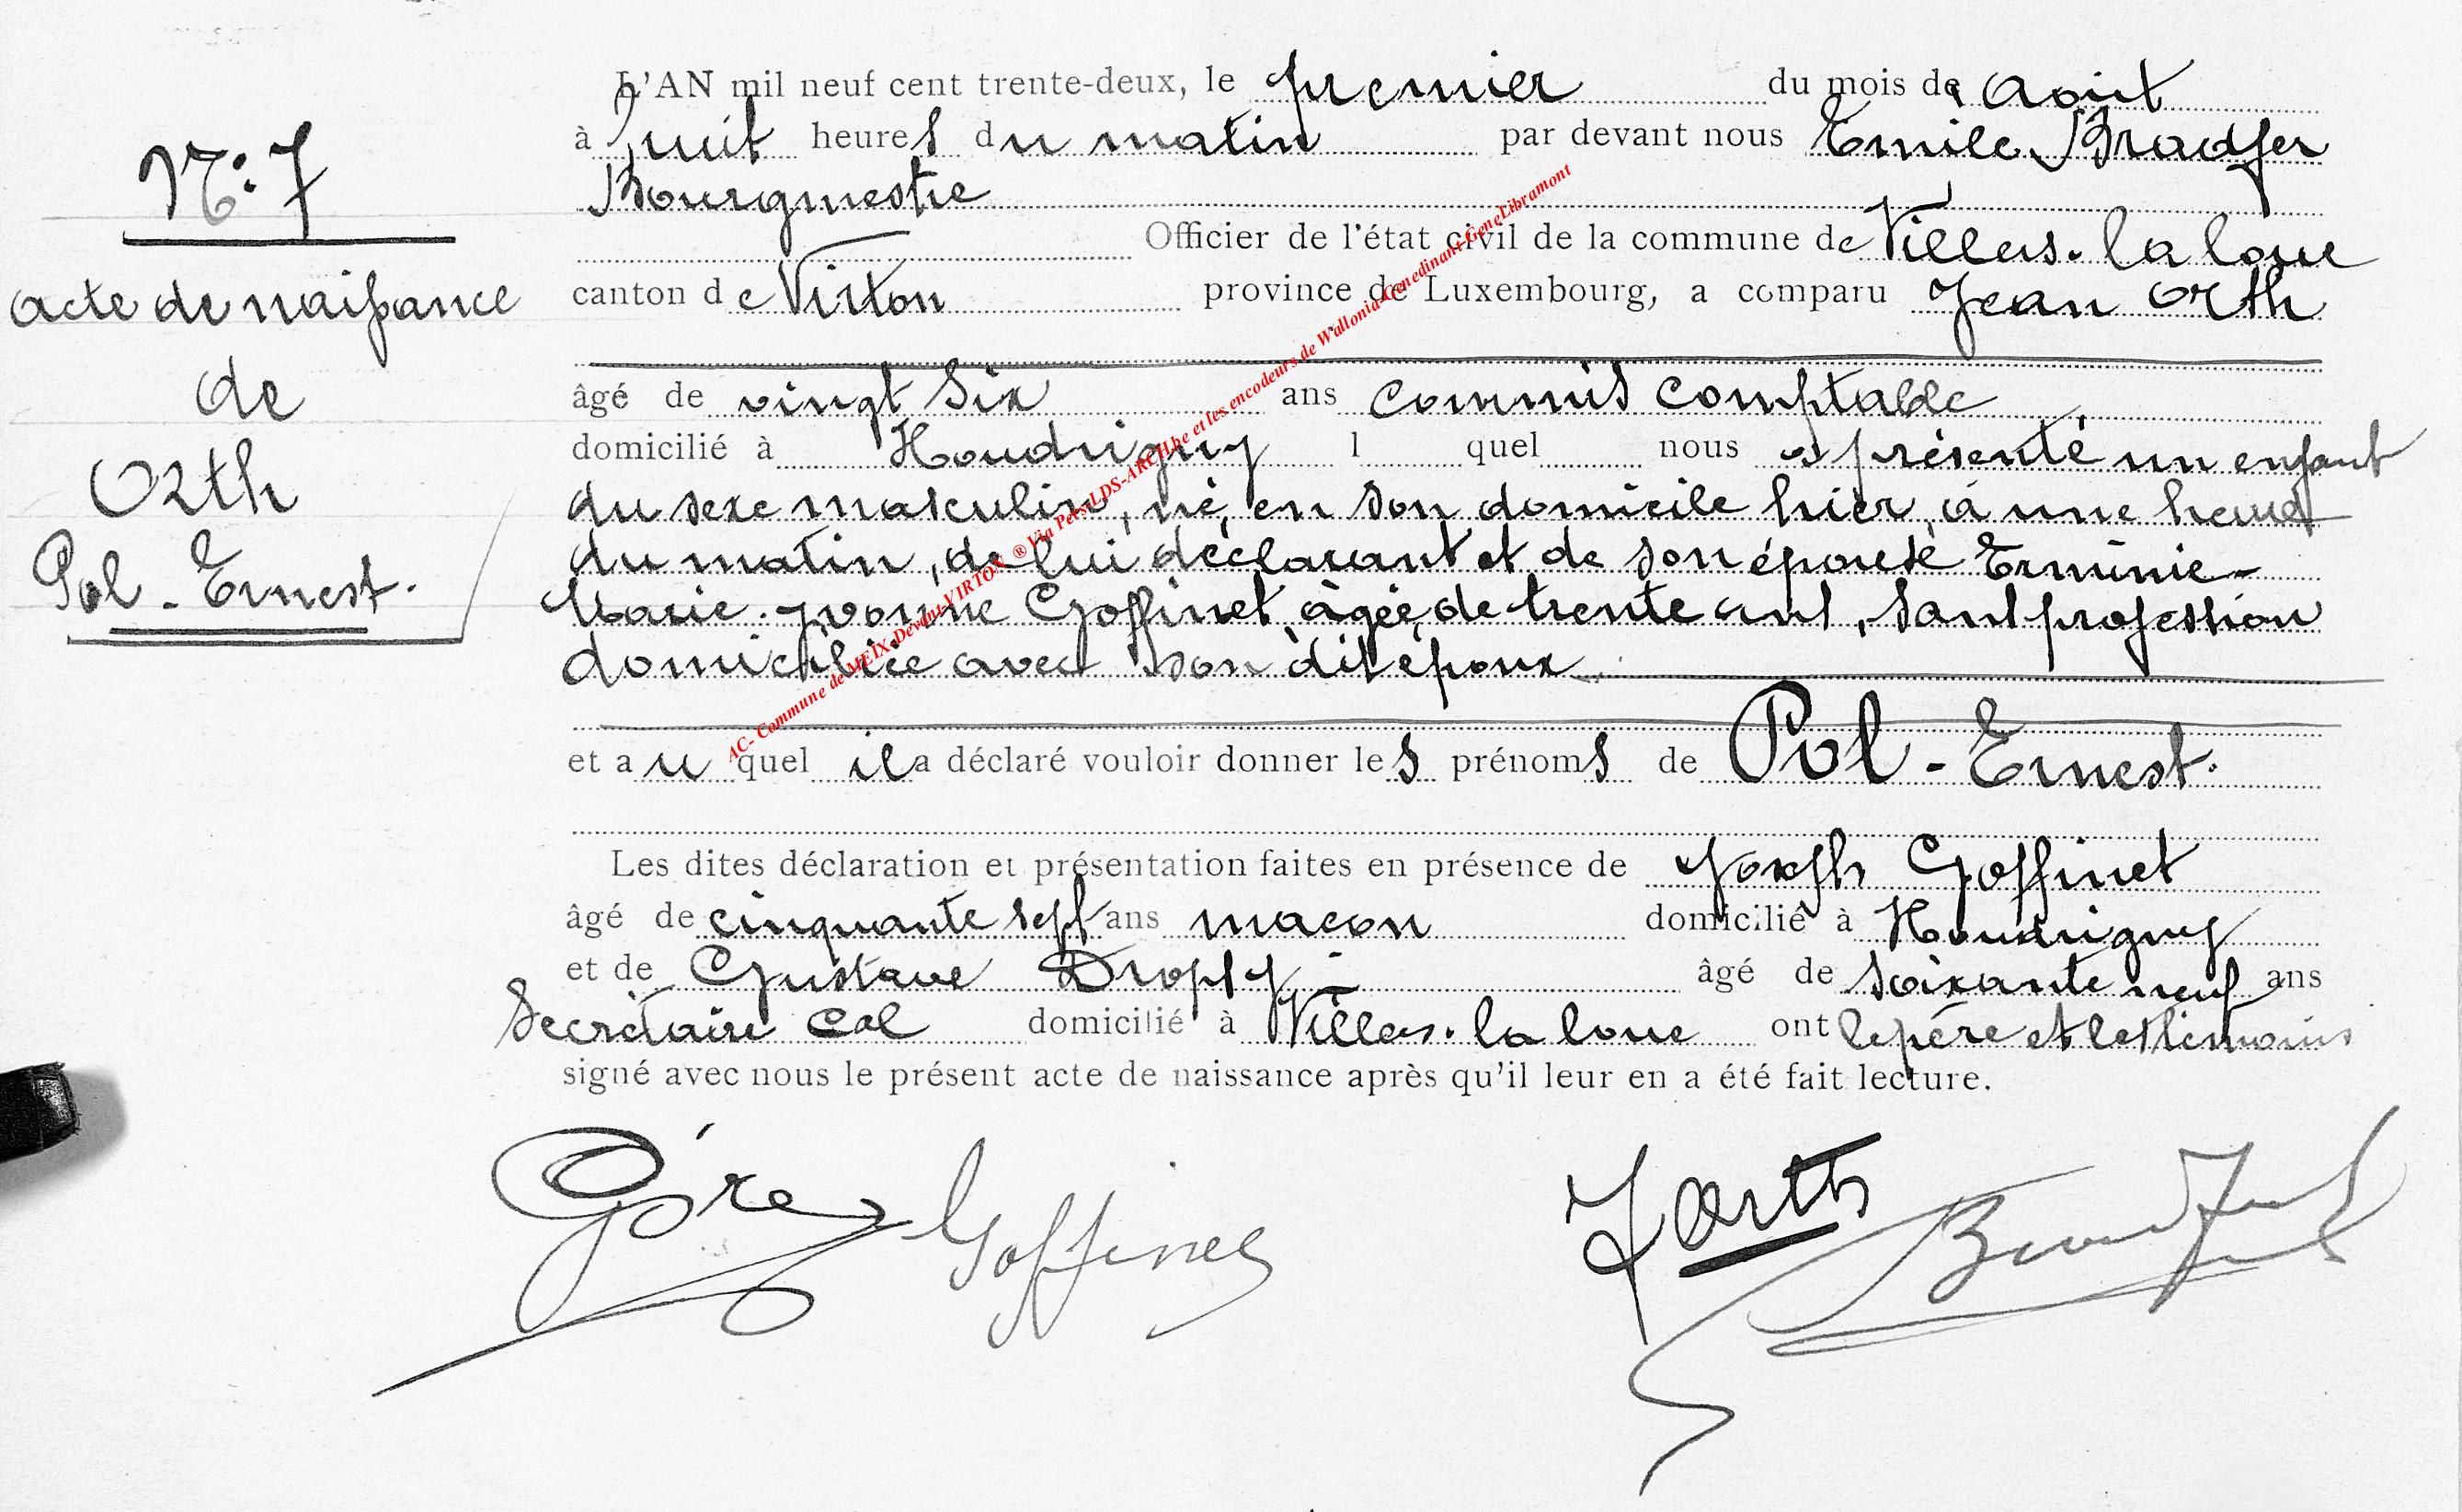 N° 7
acte de naissance
de
Orth
Pol - Ernest.
L'AN mil neuf cent trente-deux, le premier du mois de Aout
à huit heures du matin par devant nous Emile Bradfer
Bourgmestre
Officier de l'état civil de la commune de Villers-la loue
canton de Virton province de Luxembourg, a comparu Jean Orth
âgé de vingt six ans commis comptable
domicilié à Houdrigny l quel nous a présenté un enfant
du sexe masculin, né, en son domicile hier, à une heure
du matin, de lui déclarant et de son épouse Erminie-
Marie-Yvonne Goffinet âgée de trente ans, sans profession
domiciliée avec son dit époux
et au quel il a déclaré vouloir donner les prénoms de Pol - Ernest.
Les dites déclaration et présentation faites en présence de Joseph Goffinet
âgé de cinquante sept ans macon domicilié à Houdrigny
et de Gustave Dropsy âgé de soixante neuf ans
Secrétaire Cal domicilié à Villers-la loue ont le père et les témoins
signé avec nous le présent acte de naissance après qu'il leur en a été fait lecture.
Goffinet J Orth Bradfer
AC- Commune de MEIX-Devant-VIRTON ® Via Pers-LDS-ARCH.be et les encodeurs de Wallonia-Genedinant-GeneLibramont